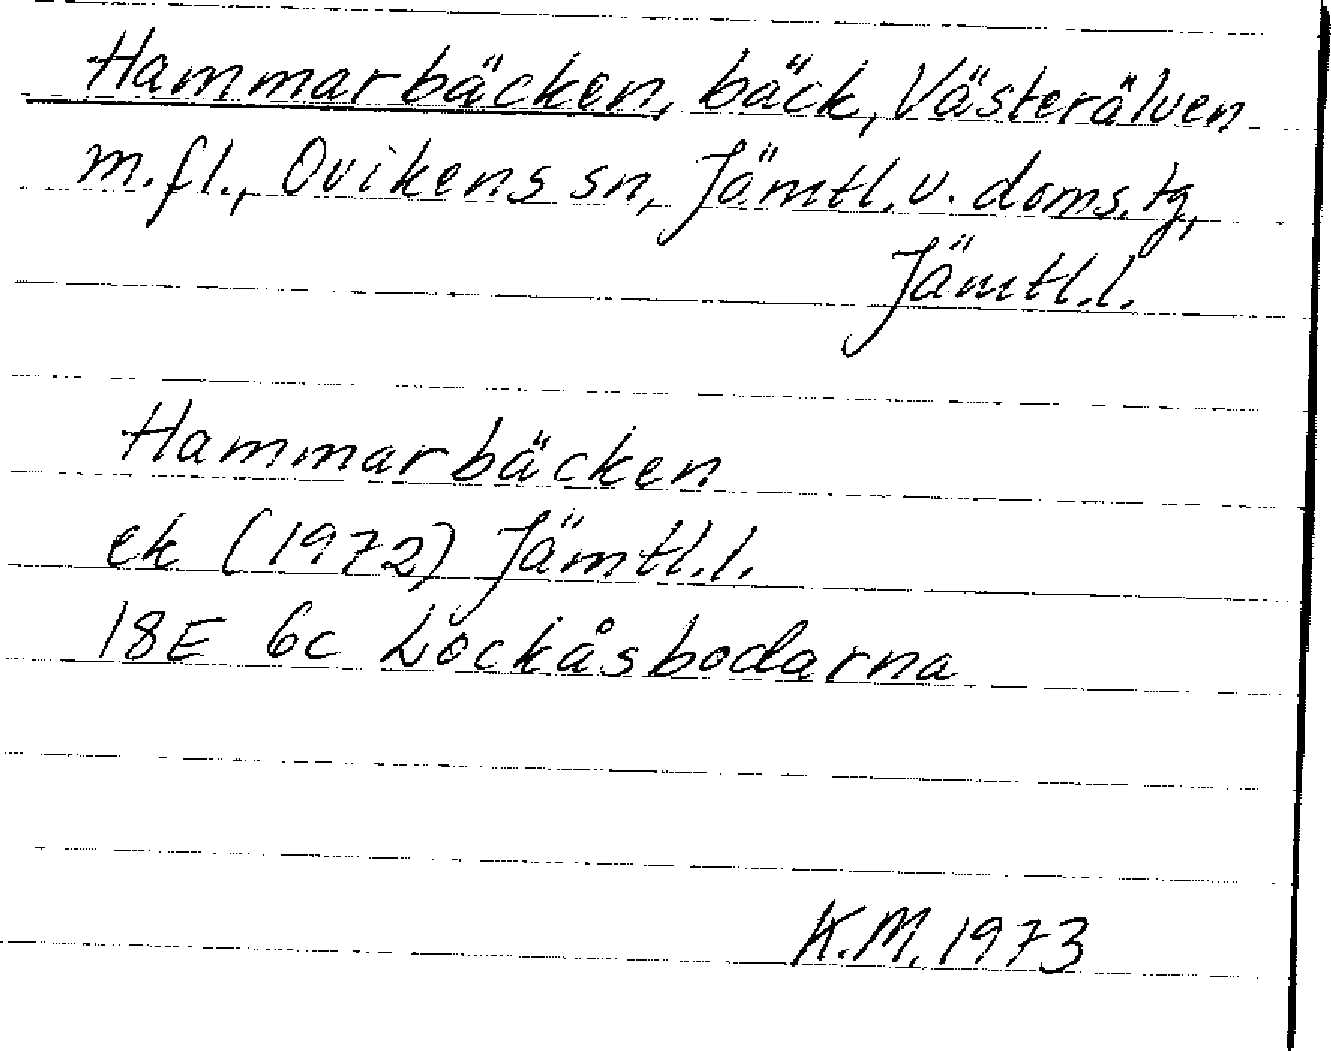 Hammarbäcken, bäck, Västerälven
m.fl., Ovikens sn, Jämtl.v. doms.tg,
Jämtl.l.
Hammarbäcken
ek (1972) Jämtl.l.
18E 6c Lockåsbodarna
K.M. 1973